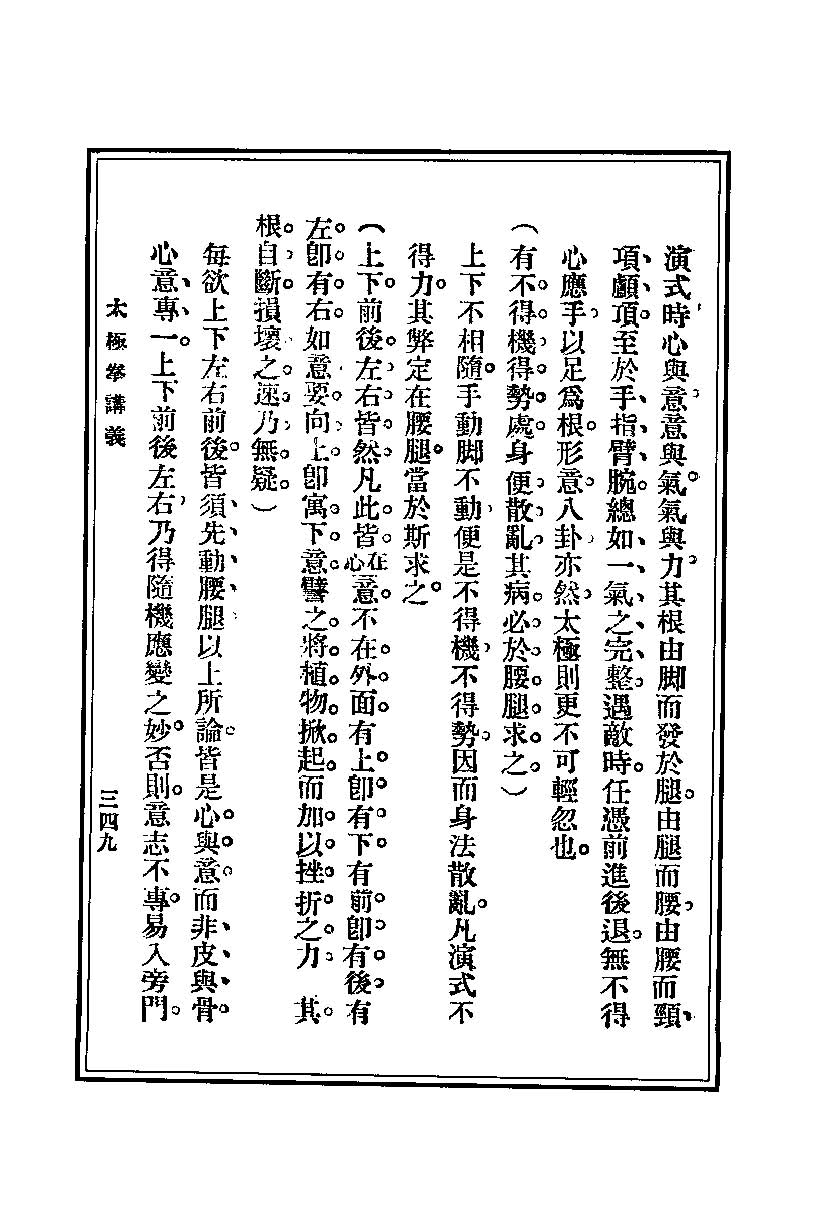 演式時心與意意與氣氣與力其根由脚而發於腿由腿而腰由腰而頸
項顱頂至於手指臂腕總如一氣之完整遇敵時任憑前進後退無不得
心應手以足爲根形意八卦亦然太極則更不可輕忽也
（有不得機得勢處身便散亂其病必於腰腿求之）
上下不相隨手動脚不動便是不得機不得勢因而身法散亂凡演式不
得力其弊定在腰腿當於斯求之
（上下前後左右皆然凡此皆在心意不在外面有上卽有下有前卽有後有
左卽有右如意要向上卽寓下意譬之將植物掀起而加以挫折之力其
根自斷損壞之速乃無疑）
每欲上下左右前後皆須先動腰腿以上所論皆是心與意而非皮與骨
心意專一上下前後左右乃得隨機應變之妙否則意志不專易入旁門
太極拳講義
三四九